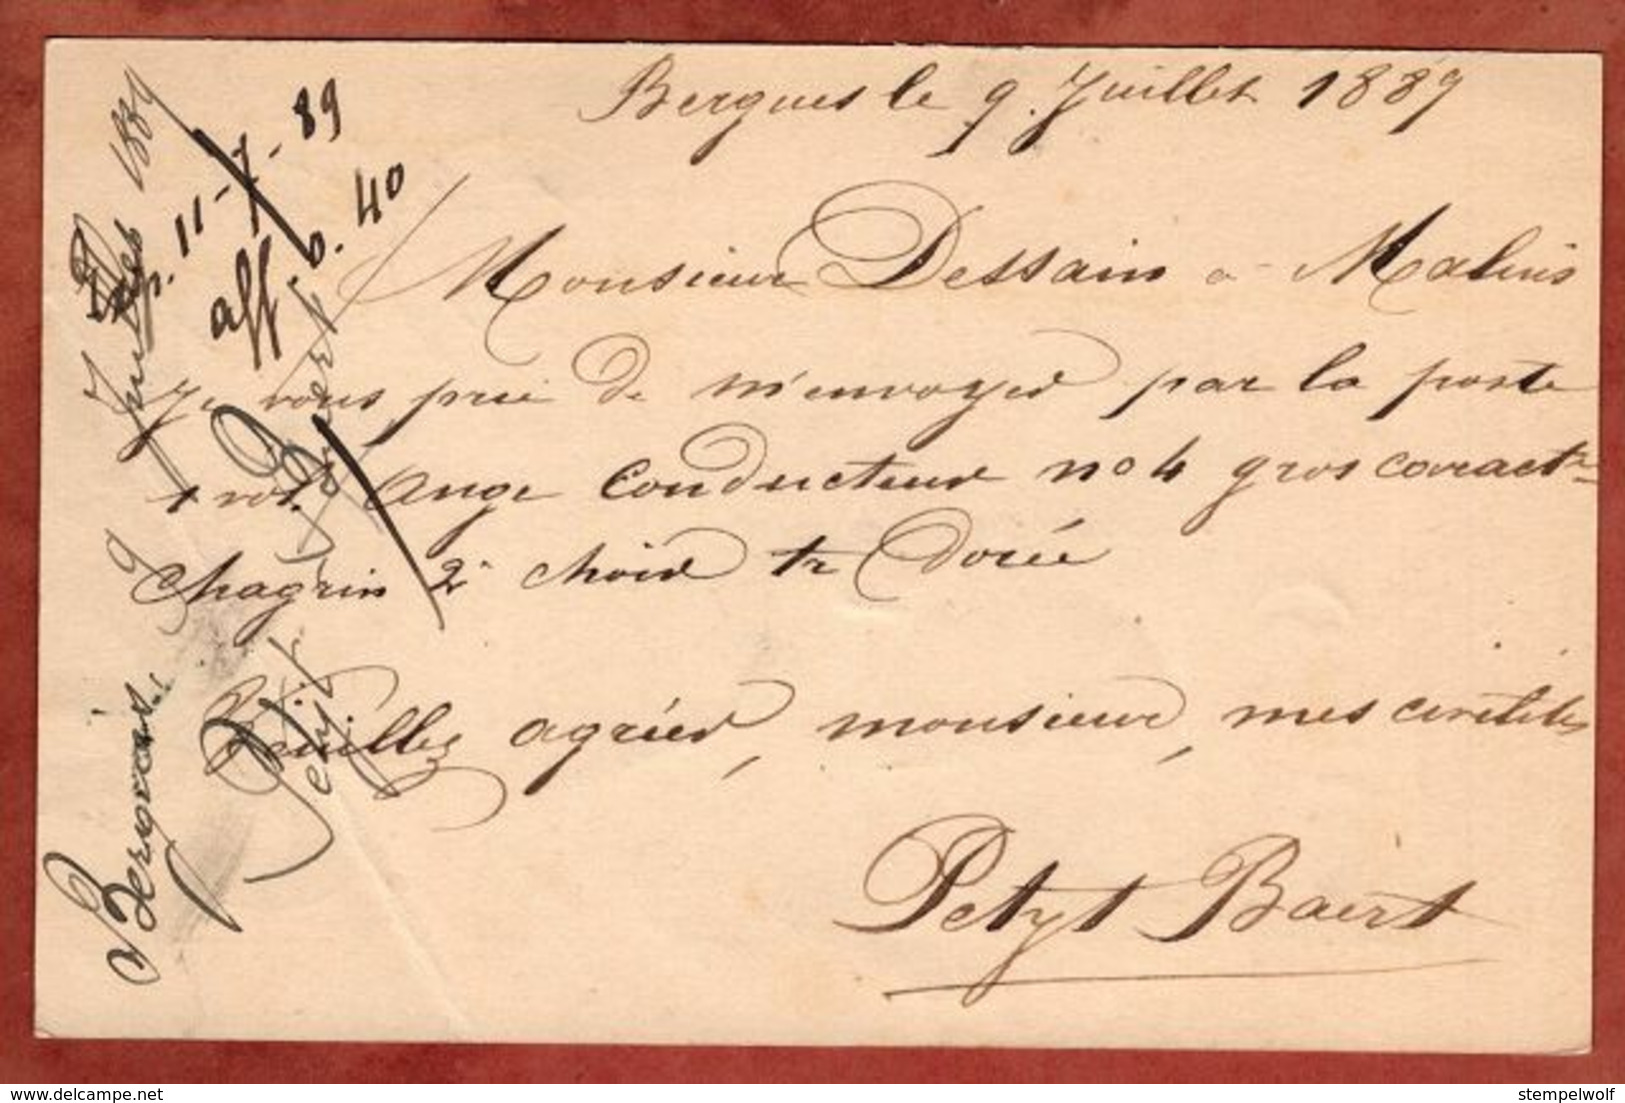 Bergues le 9. Juillet 1889
Monsieur Dessain a Malines
Je vous prie de m'envoyer par la poste
1 vol. Ange Conducteur no 4 gros caract
Chagrin 2e choix tr Dorée
Veuillez agréer, monsieur, mes civilités
Petyt Baert
Exp. 11-7-89
aff 0.40
Bergues 9 Juillet 1889
Petyt Baert
stempelwolf